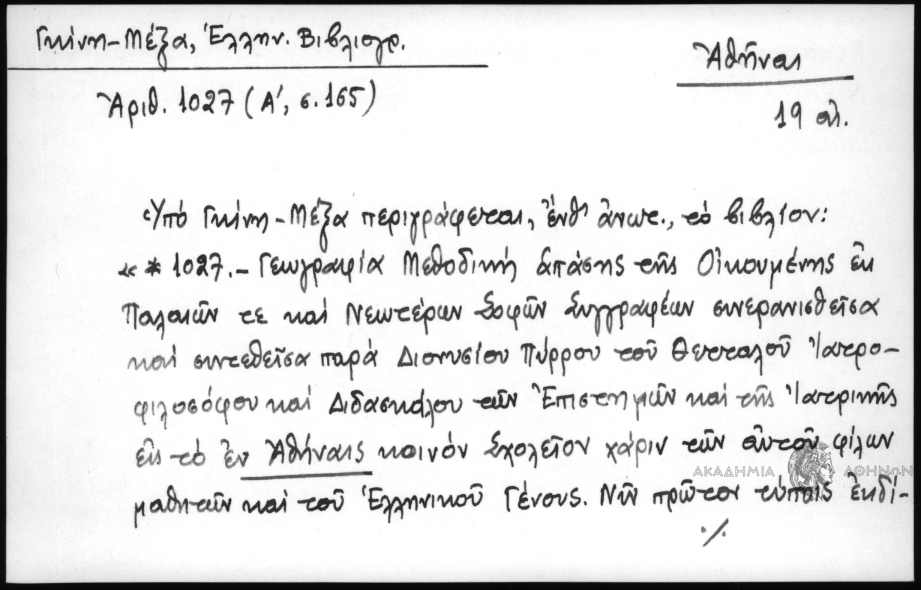 Γκίνη-Μέξα, Ἑλλην. Βιβλιογρ.
Ἀθῆναι
Ἀριθ. 1027 (Α', σ. 165)
19 αἰ.
Ὑπό Γκίνη-Μέξα περιγράφεται, ἔνθ' ἀνωτ., τό βιβλίον:
«* 1027.- Γεωγραφία Μεθοδική ἁπάσης τῆς Οἰκουμένης ἐκ
Παλαιῶν τε καί Νεωτέρων Σοφῶν Συγγραφέων συνερανισθεῖσα
καί συντεθεῖσα παρά Διονυσίου Πύρρου τοῦ Θετταλοῦ Ἰατρο-
φιλοσόφου καί Διδασκάλου τῶν Ἐπιστημῶν καί τῆς Ἰατρικῆς
εἰς τό ἐν Ἀθήναις κοινόν Σχολεῖον χάριν τῶν αὐτοῦ φίλων
ΑΚΑΔΗΜΙΑ ΑΘΗΝΩΝ
μαθητῶν καί τοῦ Ἑλληνικοῦ Γένους. Νῦν πρῶτον τύποις ἐκδί-
./.